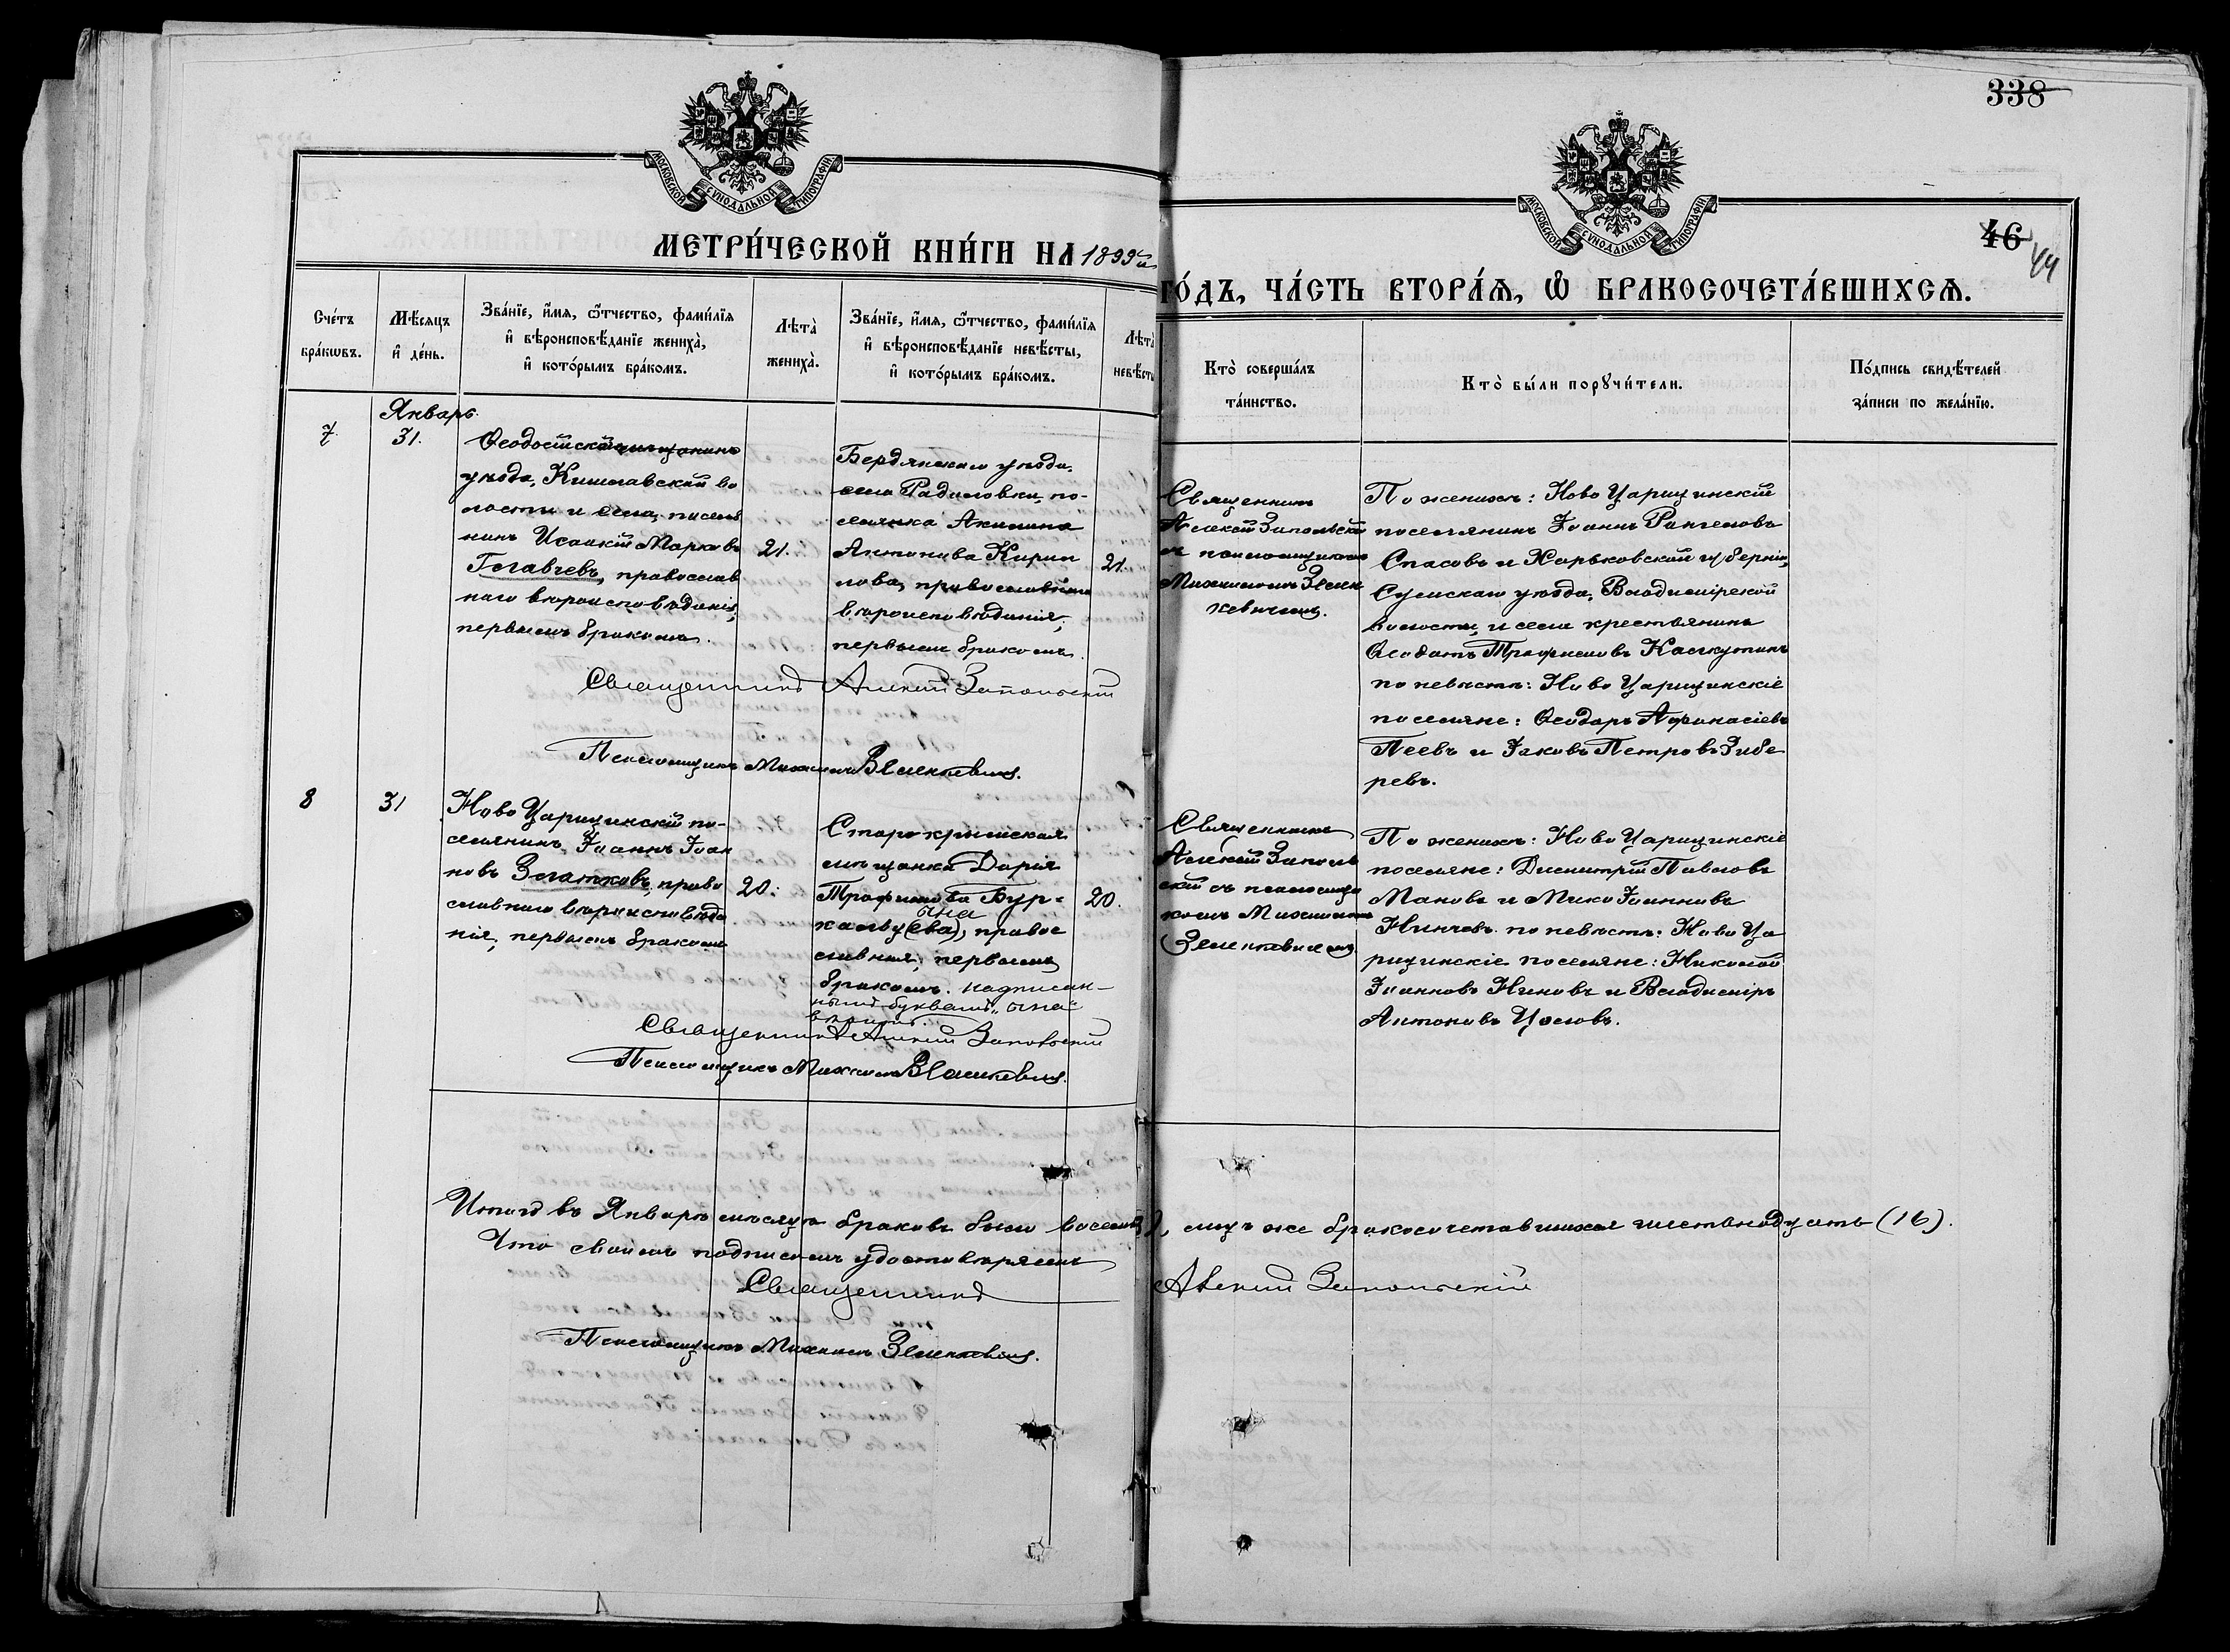 338
МОСКОВСКОЙ СѴНОДАЛЬНОЙ ТИПОГРАФІИ
МОСКОВСКОЙ СѴНОДАЛЬНОЙ ТИПОГРАФІИ
46
44
МЕТРИ́ЧЕСКОЙ КНИ́ГИ НА 1899й
ГО́ДЪ, ЧА́СТЬ ВТОРА́Ѧ, Ѽ БРАКОСОЧЕТА́ВШИХСѦ.
Сче́тъ
бра́кѡвъ.
Мѣ́сяцъ
и҆ де́нь.
Зва́нїе, и҆́мя, ѻ҆́тчество, фами́лїя
и҆ вѣроисповѣ́данїе жениха̀,
и҆ кото́рымъ бра́комъ.
Лѣта̀
жениха̀.
Зва́нїе, и҆́мя, ѻ҆́тчество, фами́лїя
и҆ вѣроисповѣ́данїе невѣ́сты,
и҆ кото́рымъ бра́комъ.
Лѣта̀
невѣ́сты
Кто̀ соверша́лъ
та́инство.
Кто̀ бы́ли порꙋчи́тели.
По́дпись свидѣ́телей
за́писи по жела́нїю.
Январь.
7.
31.
Ѳеодосійскій
уѣзда, Кишлавской во
лости и села, поселя
нинъ Исаакій Марковъ
Гславчевъ, православ
наго вѣроисповѣданія,
первымъ бракомъ.
21.
Бердянскаго уѣзда,
села Радиловки, по-
селянка Акилина
Антонова Кирил
лова, православнаго
вѣроисповѣданія,
первымъ бракомъ.
21.
Священникъ
Алексій Запольскій
съ псаломщикомъ
Михаиломъ Зелен
кевичемъ.
По женихѣ: Ново Царицинскій
поселянинъ Іоаннъ Рангеловъ
Спасовъ и Харьковской губерніи,
Сумскаго уѣзда, Владимірской
волости, и села крестьянинъ
Ѳеодотъ Трофимовъ Каскутинъ
по невѣстѣ: Ново Царицинскіе
поселяне: Ѳеодоръ Аѳанасіевъ
Пеевъ и Іаковъ Петровъ Зибе
ревъ.
Священникъ Алексій Запольскій
Псаломщикъ Михаилъ Зеленкевичъ.
8
31
Ново Царицинскій по-
селянинъ Іоаннъ Іоан
новъ Златковъ, право
славнаго вѣроисповѣда
нія, первымъ бракомъ
20.
Старокрымская
мѣщанка Дарія
Трофимова Бур-
ына
калву(ева), правос
лавная, первымъ
бракомъ. надписан-
нымъ буквамъ „ына"
вѣрить.
20.
Священникъ
Алексій Заполь
скій съ псаломщи
комъ Михаиломъ
Зеленкевичемъ
По женихѣ: Ново Царицинскіе
поселяне: Димитрій Павловъ
Мановъ и Мико Іоанновъ
Нинчевъ. по невѣстѣ: Ново Ца
рицинскіе поселяне: Николай
Іоанновъ Ниновъ и Владиміръ
Антоновъ Цоловъ.
Священникъ Алексій Запольскій
Псаломщикъ Михаилъ Зеленкевичъ.
Итого въ Январѣ мѣсяцѣ браковъ было восемь), лицъ же бракосочетавшихся шестьнадцать (16).
Что своимъ подписомъ удостовѣряемъ
Священникъ Алексій Запольскій
Псаломщикъ Михаилъ Зеленкевичъ.